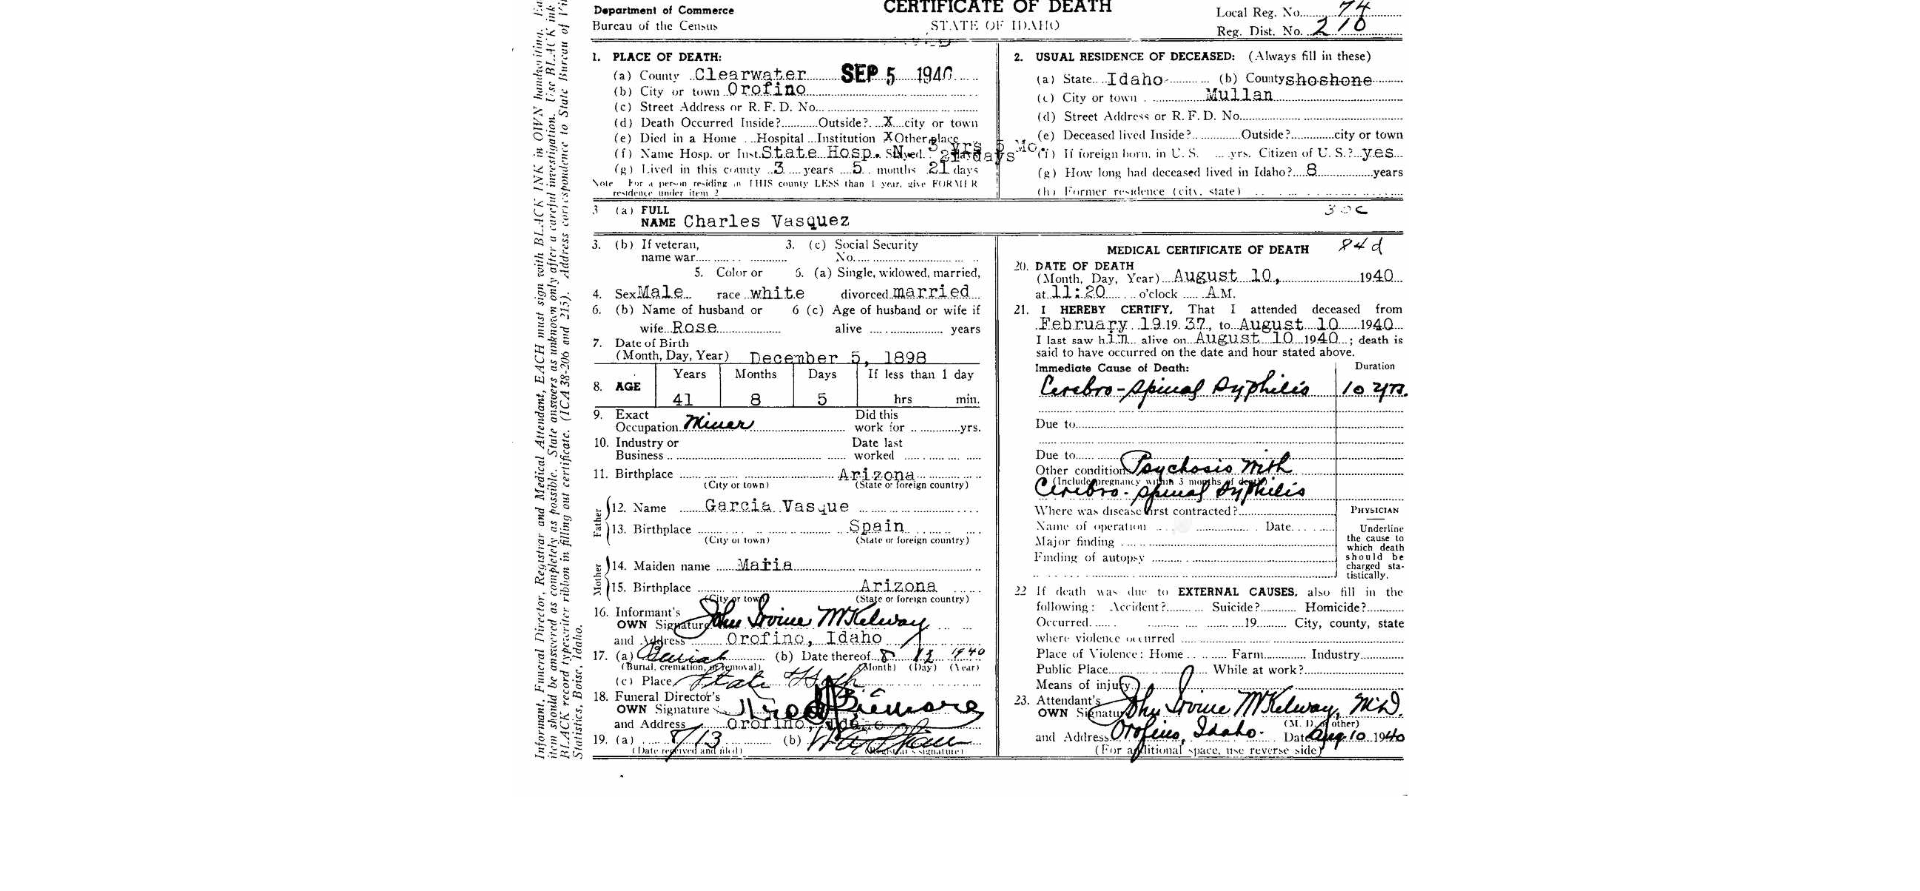 Department of Commerce
Bureau of the Census
CERTIFICATE OF DEATH
STATE OF IDAHO
Local Reg. No. 74
Reg. Dist. No. 210
1. PLACE OF DEATH:
(a) County Clearwater SEP 5 1940
(b) City or town Orofino
(c) Street Address or R. F. D. No.
(d) Death Occurred Inside? Outside? X city or town
(e) Died in a Home Hospital Institution X Other place
(f) Name Hosp. or Inst. State Hosp. N. 3 yrs 5 Mo. 21 days
(g) Lived in this county 3 years 5 months 21 days
Note For a person residing in THIS county LESS than 1 year, give FORMER
residence under item 2
2. USUAL RESIDENCE OF DECEASED: (Always fill in these)
(a) State Idaho (b) County shoshone
(c) City or town Mullan
(d) Street Address or R. F. D. No.
(e) Deceased lived Inside? Outside? city or town
(f) If foreign born, in U. S. yrs. Citizen of U. S.? yes
(g) How long had deceased lived in Idaho? 8 years
(h) Former residence (city, state)
3 (a) FULL
NAME Charles Vasquez
30c
3. (b) If veteran, 3. (c) Social Security
name war No.
5. Color or 6. (a) Single, widowed, married,
4. Sex Male race white divorced married
6. (b) Name of husband or 6 (c) Age of husband or wife if
wife Rose alive years
7. Date of Birth
(Month, Day, Year) December 5, 1898
Years Months Days If less than 1 day
8. AGE 41 8 5 hrs min.
9. Exact Did this
Occupation Miner work for yrs.
10. Industry or Date last
Business worked
11. Birthplace Arizona
(City or town) (State or foreign country)
Father
12. Name Garcia Vasque
13. Birthplace Spain
(City or town) (State or foreign country)
Mother
14. Maiden name Maria
15. Birthplace Arizona
(City or town) (State or foreign country)
16. Informant's
OWN Signature John Irvine McKelway
and Address Orofino, Idaho
17. (a) Burial (b) Date thereof 8 12 1940
(Burial, cremation, or removal) (Month) (Day) (Year)
(c) Place State Hosp
18. Funeral Director's
OWN Signature
and Address Orofino, Idaho
19. (a) 8/13 (b)
(Date received and filed) (Registrar's signature)
MEDICAL CERTIFICATE OF DEATH 84d
20. DATE OF DEATH
(Month, Day, Year) August 10, 1940
at 11:20 o'clock A.M.
21. I HEREBY CERTIFY, That I attended deceased from
February 19 19 37, to August 10 1940
I last saw him alive on August 10 1940; death is
said to have occurred on the date and hour stated above.
Immediate Cause of Death: Duration
Cerebro-Spinal Syphilis 10 yrs.
Due to
Due to
Other condition Psychosis with
(Include pregnancy within 3 months of death)
Cerebro-spinal Syphilis
Where was disease first contracted?
Name of operation Date
Major finding
Finding of autopsy
PHYSICIAN
Underline
the cause to
which death
should be
charged sta-
tistically.
22 If death was due to EXTERNAL CAUSES, also fill in the
following: Accident? Suicide? Homicide?
Occurred 19 City, county, state
where violence occurred
Place of Violence: Home Farm Industry
Public Place While at work?
Means of injury
23. Attendant's
OWN Signature John Irvine McKelway, M.D.
(M. D. or other)
and Address Orofino, Idaho. Date Aug 10 1940
(For additional space, use reverse side)
Informant, Funeral Director, Registrar and Medical Attendant, EACH must sign with BLACK INK in OWN handwriting.
item should be answered as completely as possible. State answers as unknown only after a careful investigation. Use BLACK ink
BLACK record typewriter ribbon in filling out certificate. (ICA 38-206 and 215). Address correspondence to State Bureau of
Statistics, Boise, Idaho.